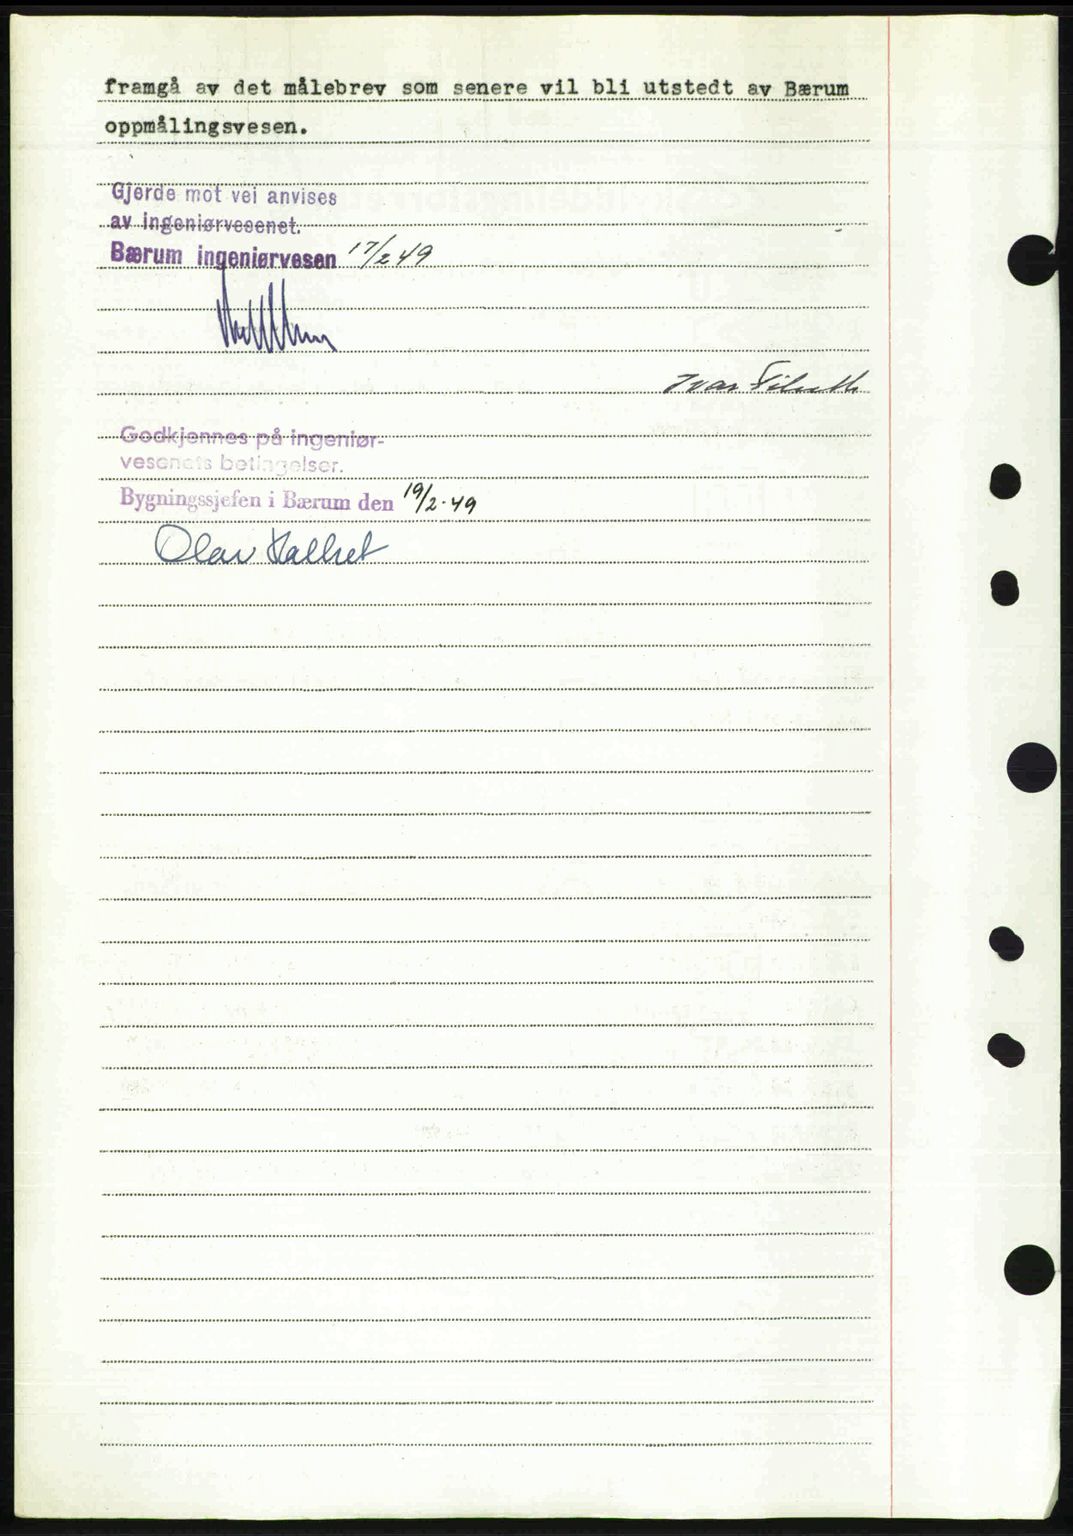 framgå av det målebrev som senere vil bli utstedt av Bærum
oppmålingsvesen.
Gjerde mot vei anvises
av ingeniørvesenet.
Bærum ingeniørvesen 17/2 49
Ivar
Godkjennes på ingeniør-
vesenets betingelser.
Bygningssjefen i Bærum den 19/2-49
Olav Hallset